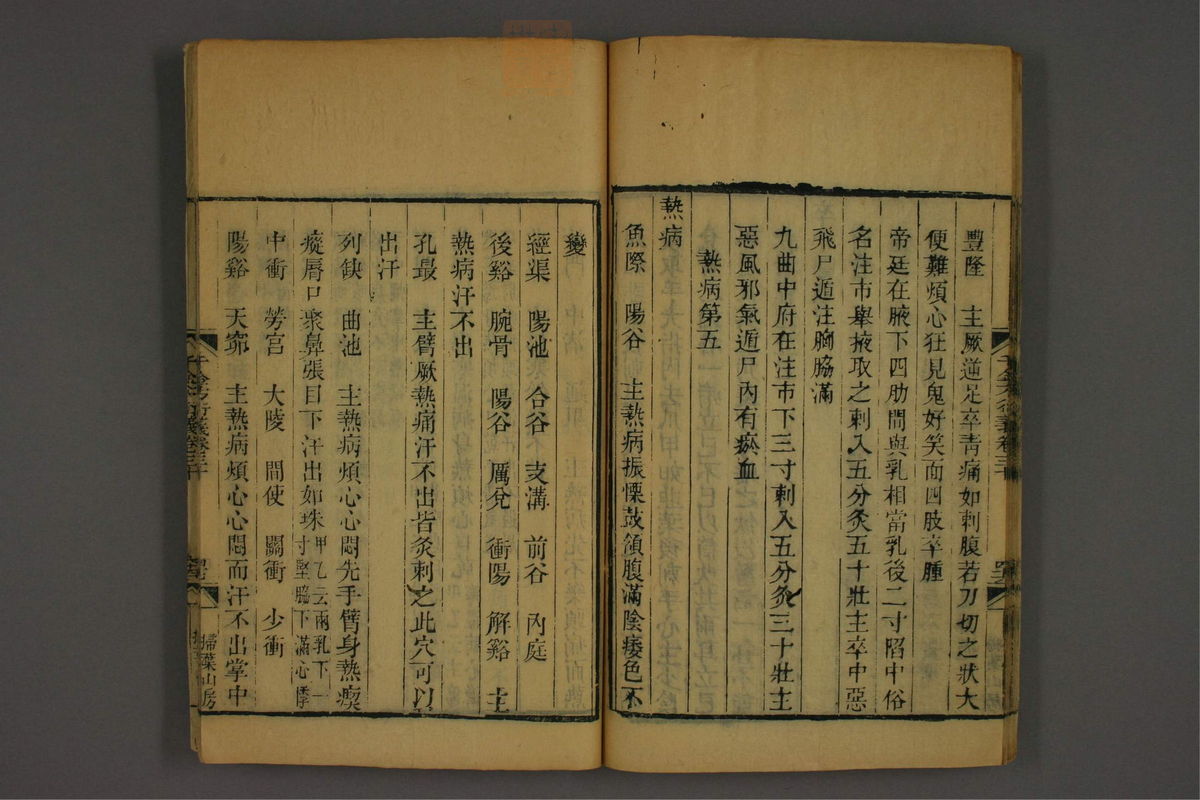 豐隆　主厥逆足卒青痛如刺腹若刀切之狀大
便難煩心狂見鬼好笑面四肢卒腫
帝廷在腋下四肋間與乳相當乳後二寸陷中俗
名注市舉掖取之刺入五分灸五十壯主卒中惡
飛尸遁注胸脇滿
九曲中府在注市下三寸刺入五分灸三十壯主
惡風邪氣遁尸內有瘀血
熱病第五
熱病
魚際　陽谷　主熱病振慄鼓頷腹滿陰痿色不
變
經渠　陽池　合谷　支溝　前谷　內庭
後谿　腕骨　陽谷　厲兌　衝陽　解谿　主
熱病汗不出
孔最　主臂厥熱痛汗不出皆灸刺之此穴可以
出汗
列缺　曲池　主熱病煩心心悶先手臂身熱瘈
瘲唇口聚鼻張目下汗出如珠甲乙云兩乳下一寸堅脇下滿心悸
中衝　勞宮　大陵　間使　關衝　少衝
陽谿　天窌　主熱病煩心心悶而汗不出掌中
千金方衍義卷三十
掃葉山房